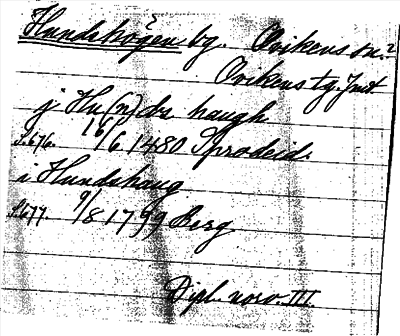 Hundehögen by. Ovikens sn.²
Ovikens tg. Jmt
j Hu(n)da haugh
s. 676. 16/6 1480
i Hundehaug
s. 677. 9/8 1799 Berg
Dipl. norv. III.